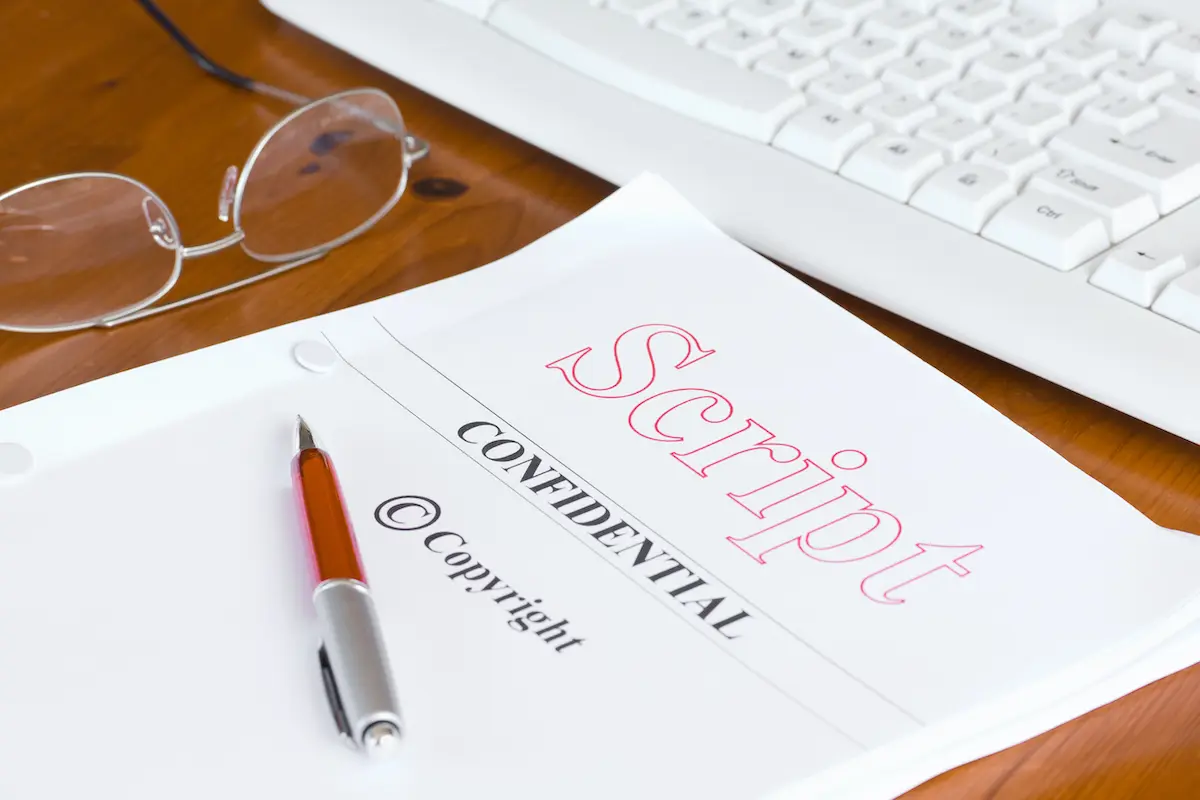 Script
CONFIDENTIAL
© Copyright
Enter
Shift
Ctrl